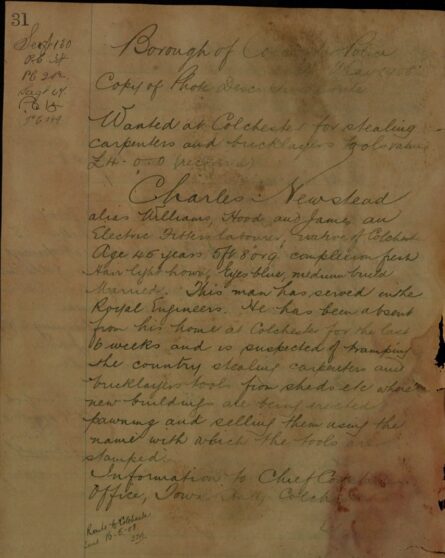 31
Borough of Police
Copy of
Wanted at Colchester for stealing
carpenters and bricklayers tools value
£4-0-0
Charles Newstead
alias Williams, Hood and James an
Electric Fitters labourer, native of Colchest
Age 45 years 5ft 8 or 9, complexion fresh
Hair light brown, Eyes blue, medium build
Married. This man has served in the
Royal Engineers. He has been absent
from his home at Colchester for the last
6 weeks and is suspected of tramping
the country stealing carpenters and
bricklayers tools from sheds etc where
new buildings are being erected
pawning and selling them using the
name with which the tools are
stamped.
Information to Chief
Office, Town Colch